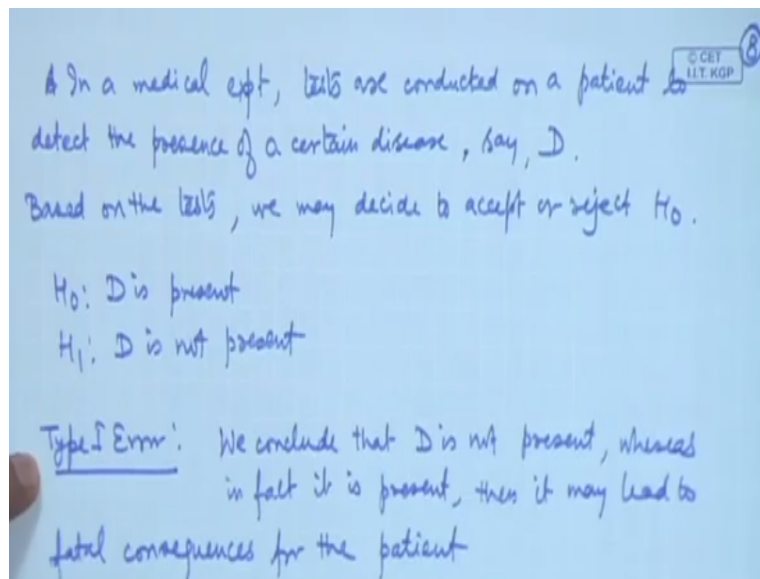 8
© CET
I.I.T. KGP
In a medical expt, tests are conducted on a patient to
detect the presence of a certain disease, say, D.
Based on the tests, we may decide to accept or reject H0.
H0: D is present
H1: D is not present
Type I Error: We conclude that D is not present, whereas
in fact it is present, then it may lead to
fatal consequences for the patient